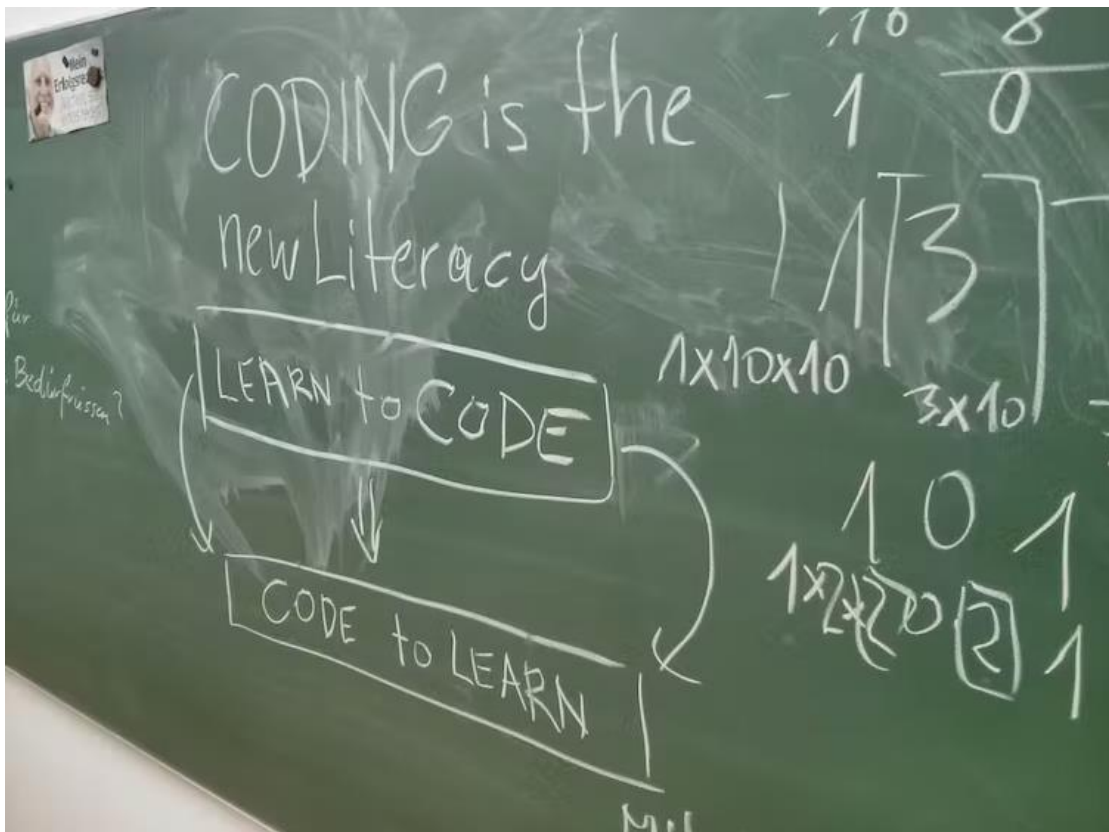 Mein
CODING is the
new Literacy
LEARN to CODE
CODE to LEARN
für
Bedürfnissen?
8
- 1 0
1 1 3
1x10x10
3x10
1 0 1
1x2x2 0 2 1